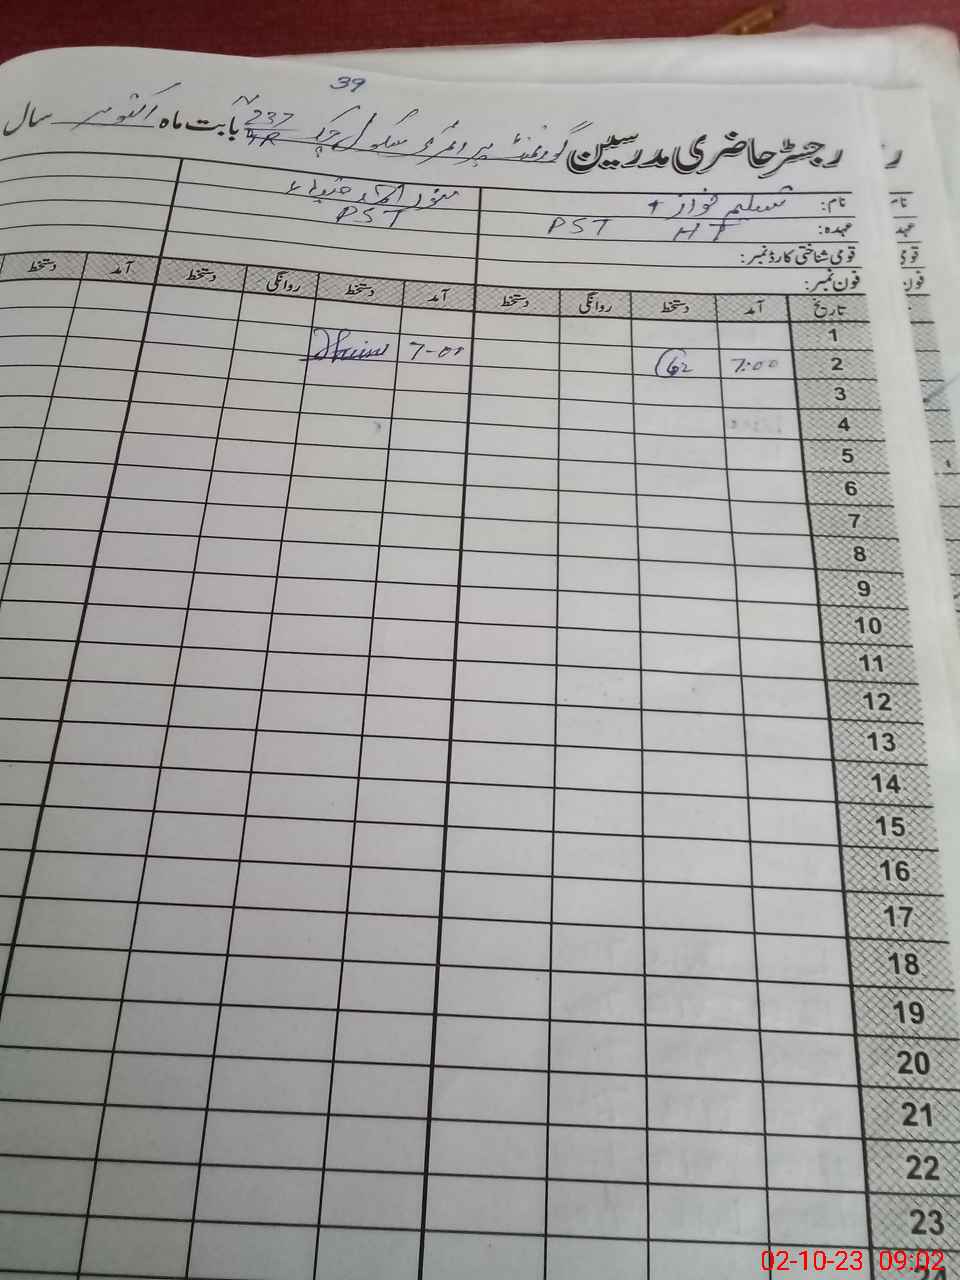 39
رجسٹر حاضری مدرسین گورنمنٹ پرائمری سکول چک 237 بابت ماہ اکتوبر سال
نام: تسلیم نواز
عہدہ: HT PST PST
قومی شناختی کارڈ نمبر:
فون نمبر:
تاریخ آمد دستخط روانگی دستخط آمد دستخط روانگی دستخط آمد دستخط
1
2 7:00 7-00
3
4
5
6
7
8
9
10
11
12
13
14
15
16
17
18
19
20
21
22
23
24
02-10-23 09:02